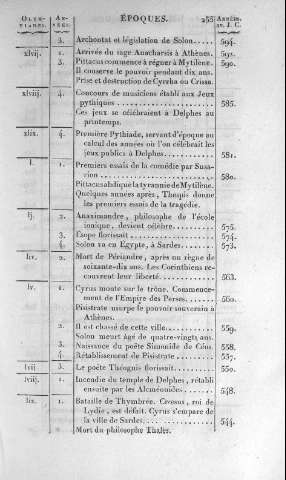 OLYM- AN- ÉPOQUES. 255 Années
PIADES. NÉES. av. J. C.
3. Archontat et législation de Solon..... 594.
xlvij. 1. Arrivée du sage Anacharsis à Athènes.
3. Pittacus commence à régner à Mytilène. 590.
Il conserve le pouvoir pendant dix ans.
Prise et destruction de Cyrrha ou Crissa.
xlviij. 4. Concours de musiciens établi aux Jeux
pythiques 585.
Ces jeux se célébraient à Delphes au
printemps.
xlix. 4. Première Pythiade, servant d'époque au
calcul des années où l'on célébrait les
jeux publics à Delphes 581.
l. 1. Premiers essais de la comédie par Susa-
rion 580.
Pittacus abdique la tyrannie de Mytilène.
Quelques années après, Thespis donne
les premiers essais de la tragédie.
lj. 2. Anaximandre, philosophe de l'école
ionique, devient célèbre 575.
3. Esope florissait 574.
4. Solon va en Egypte, à Sardes 573.
liv. 2. Mort de Périandre, après un règne de
soixante-dix ans. Les Corinthiens re-
couvrent leur liberté 563.
lv. 1. Cyrus monte sur le trône. Commence-
ment de l'Empire des Perses 560.
Pisistrate usurpe le pouvoir souverain à
Athènes.
2. Il est chassé de cette ville 559.
Solon meurt âgé de quatre-vingts ans.
3. Naissance du poëte Simonide de Céos. 558.
4. Rétablissement de Pisistrate 557.
lvij 3. Le poëte Théognis florissait 550.
1. Incendie du temple de Delphes, rétabli
ensuite par les Alcméonides 548.
lix. 1. Bataille de Thymbrée. Crœsus, roi de
Lydie, est défait. Cyrus s'empare de
la ville de Sardes 544.
Mort du philosophe Thalès.